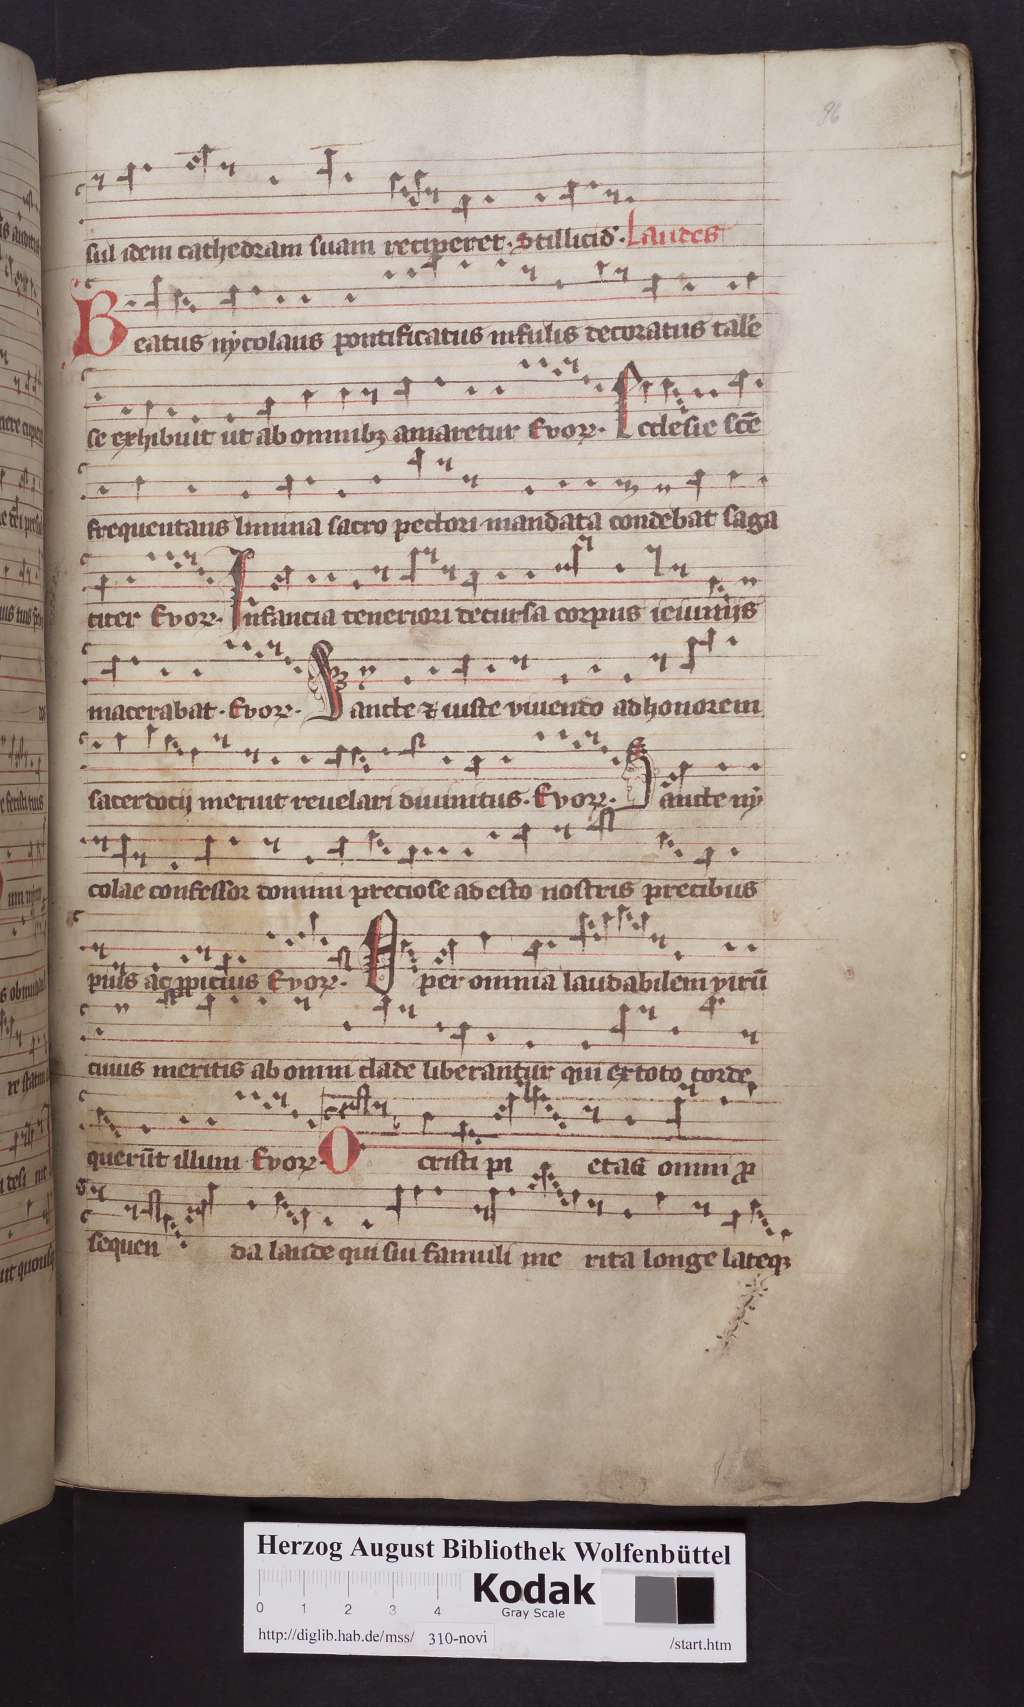 96
sul idem cathedram suam reciperet. Stillicid̄. Laudes
Beatus nycolaus pontificatus infulis decoratus talē
se exhibuit ut ab omnibꝫ amaretur Evoꝝ. Ecclesie scē
frequentans limina sacro pectori mandata condebat saga
citer Evoꝝ. Infantia teneriori decursa corpus ieiuniis
macerabat. Evoꝝ. Iuste viuendo ad honorem
sacerdotij meruit reuelari diuinitus. Evoꝝ. Sancte ny
colae confessor domini preciose adesto nostris precibus
pius ac ꝓpicius Evoꝝ. O per omnia laudabilem virū
cuius meritis ab omni clade liberantur qui ex toto corde
querūt illum Evoꝝ. O cristi pi etas omni ꝓ
sequen da laude qui sui famuli me rita longe lateqꝫ
Herzog August Bibliothek Wolfenbüttel
Kodak
Gray Scale
0 1 2 3 4
http://diglib.hab.de/mss/ 310-novi /start.htm